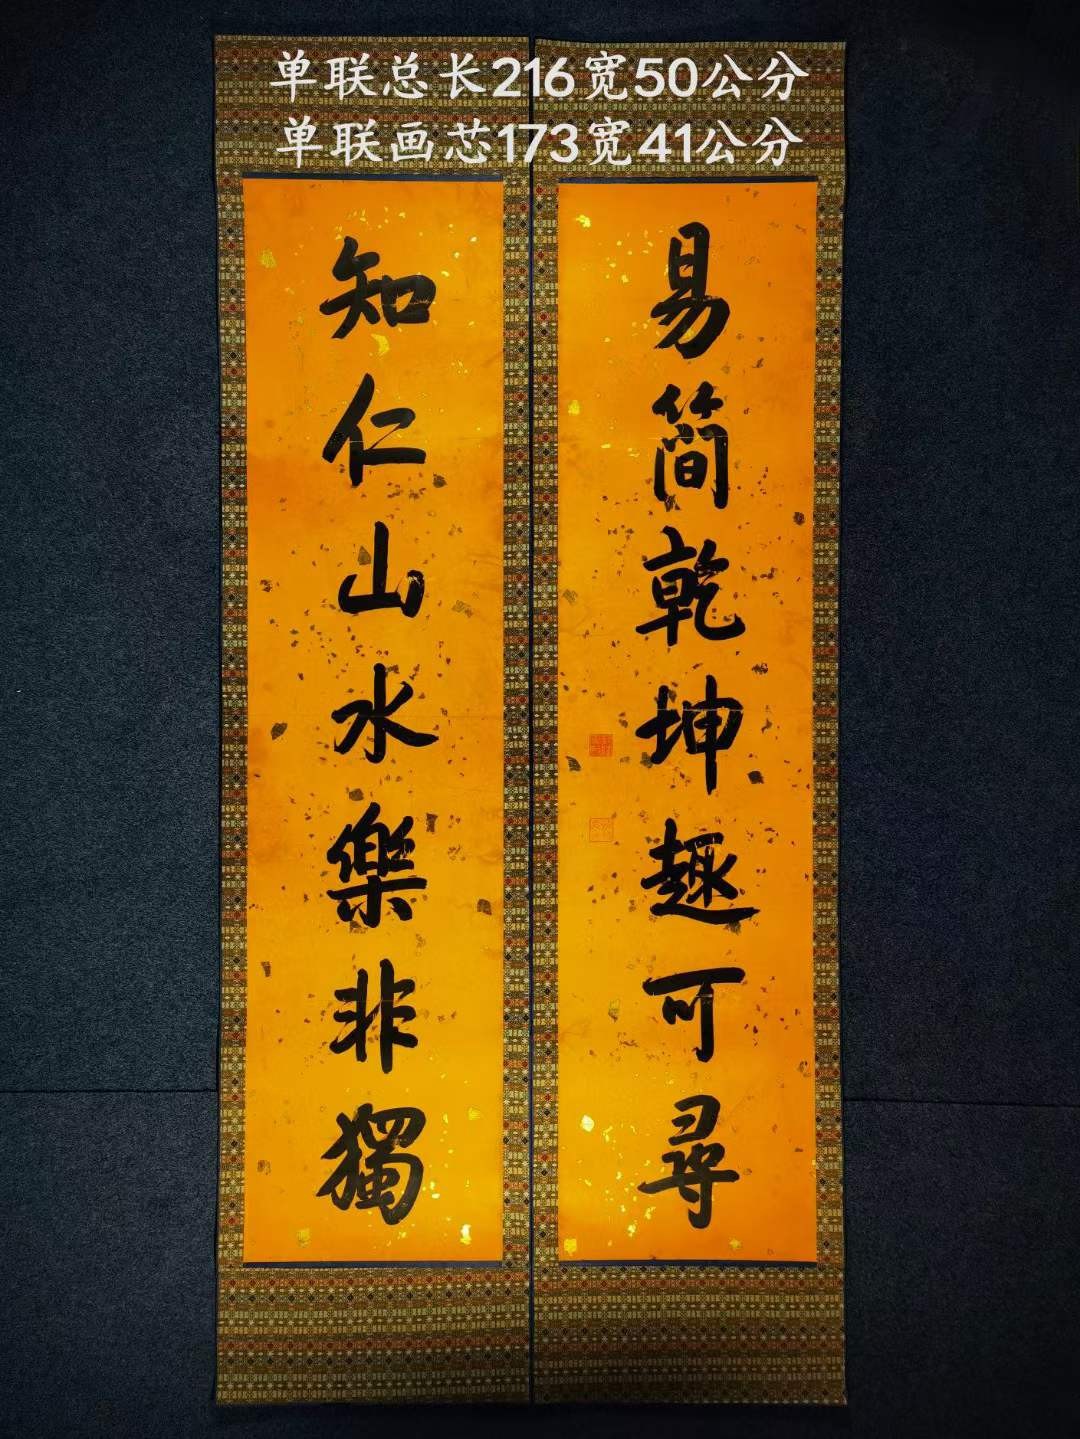 单联总长216宽50公分
单联画芯173宽41公分
易簡乾坤趣可尋
知仁山水樂非獨